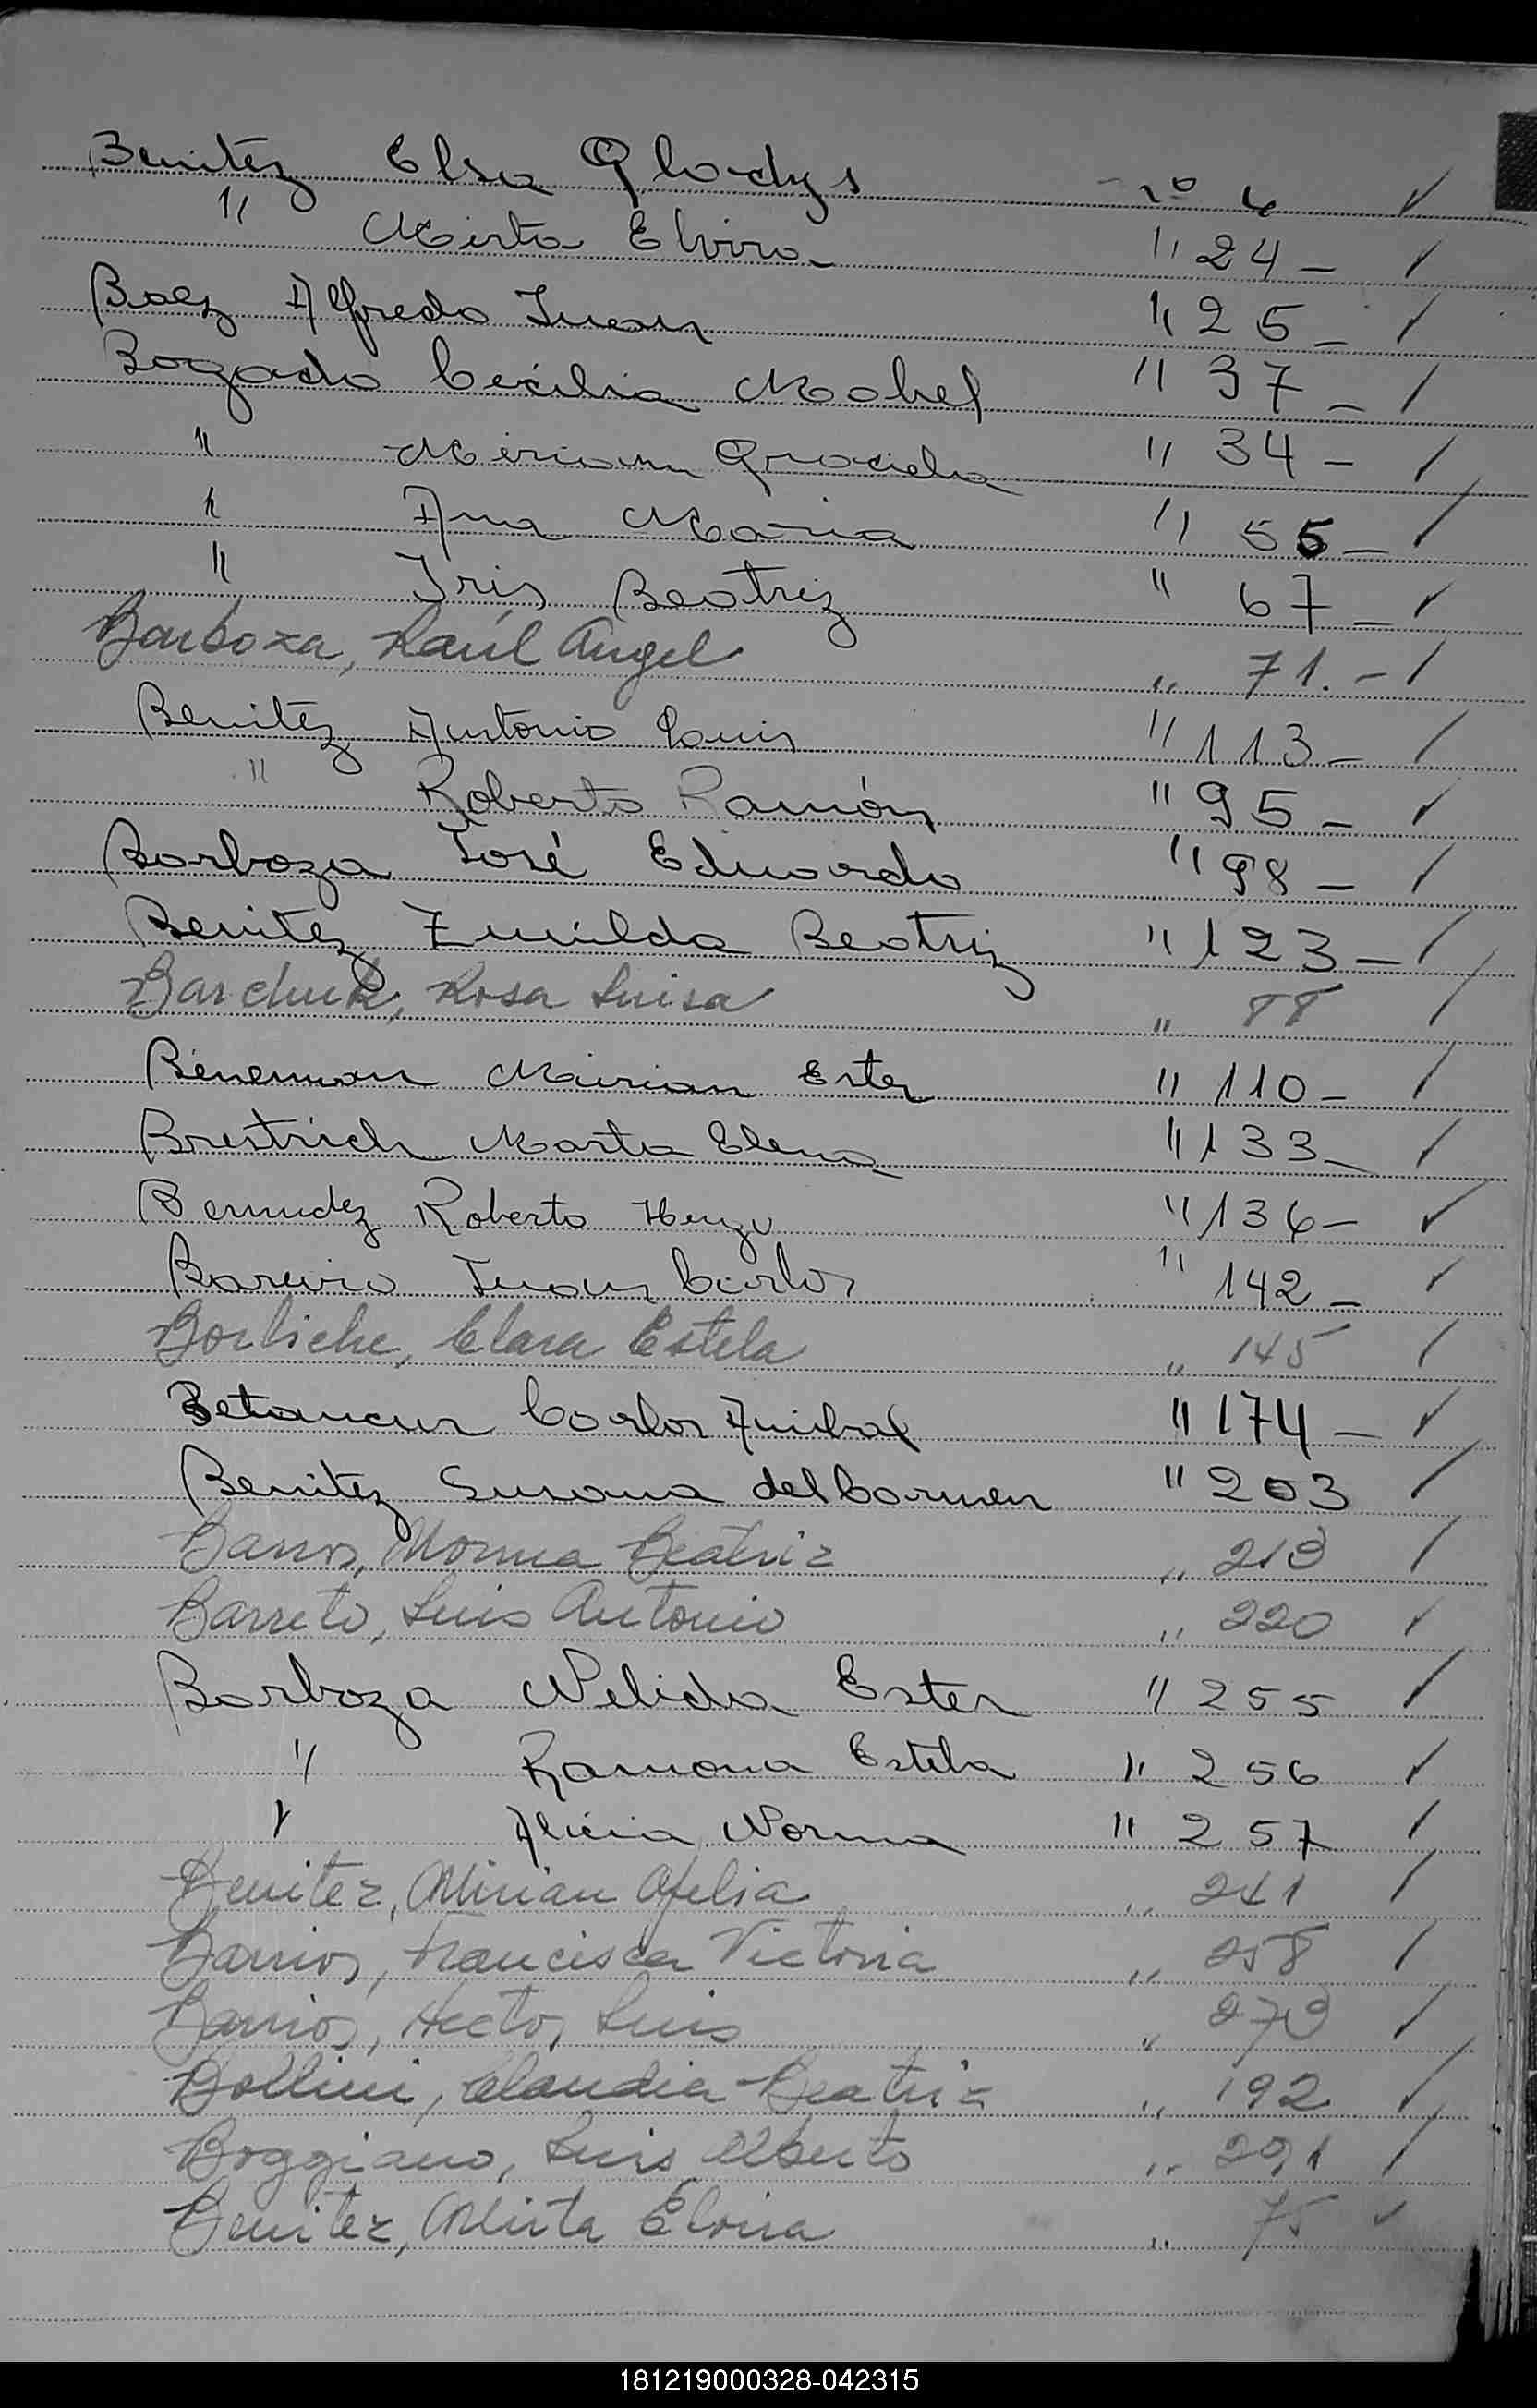 Benitéz Elsa Gladys nº 4 ✓
" Mirta Elvira " 24 – ✓
Baez Alfredo Juan " 25 – ✓
Bogado Cecilia Mabel " 37 – ✓
" Miriam Graciela " 34 – ✓
" Ana Maria " 55 – ✓
" Iris Beatriz " 67 – ✓
Barboza, Raúl Angel " 71. – ✓
Benitéz Antonio Luis " 113 – ✓
" Roberto Ramón " 95 – ✓
Barboza José Eduardo " 98 – ✓
Benitez Zunilda Beatriz " 123 – ✓
Barchuk, Rosa Luisa " 88 ✓
Beneman Mirian Ester " 110 – ✓
Brestrich Marta Elena " 133 – ✓
Bermudez Roberto Hugo " 136 – ✓
Bareiro Juan Carlos " 142 – ✓
Borliche, Clara Estela " 145 ✓
Betancur Carlos Anibal " 174 – ✓
Benitez Susana del Carmen " 203 ✓
Barros, Norma Beatriz " 213 ✓
Barreto, Luis Antonio " 220 ✓
Barboza Nelida Ester " 255 ✓
" Ramona Estela " 256 ✓
" Alicia Norma " 257 ✓
Benitez, Mirian Ofelia " 241 ✓
Barrios, Francisca Victoria " 258 ✓
Barrios, Hector Luis " 273 ✓
Bollini, Claudia Beatriz " 192 ✓
Boggiano, Luis Alberto " 291 ✓
Benitez, Mirta Elvira " 75 ✓
181219000328-042315